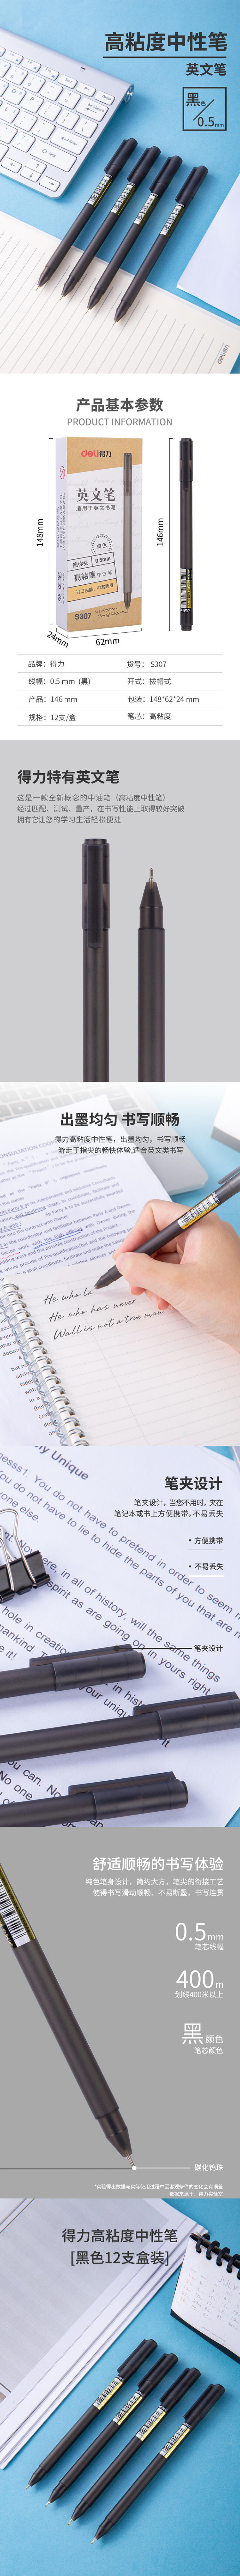 高粘度中性笔
英文笔
黑色
0.5mm
deli得力
产品基本参数
PRODUCT INFORMATION
148mm
146mm
24mm
62mm
deli得力
英文笔
适用于英文书写
黑色
迷你头 0.5mm
高粘度中性笔
S307
品牌：得力
货号： S307
线幅：0.5 mm (黑)
开式：拔帽式
产品：146 mm
包装：148*62*24 mm
规格：12支/盒
笔芯：高粘度
得力特有英文笔
这是一款全新概念的中油笔（高粘度中性笔）
经过匹配、测试、量产，在书写性能上取得较好突破
拥有它让您的学习生活轻松便捷
出墨均匀 书写顺畅
得力高粘度中性笔，出墨均匀，书写顺畅
游走于指尖的畅快体验,适合英文类书写
He who la
He who has never
Wall is not a true man
笔夹设计
笔夹设计，当您不用时，夹在
笔记本或书上方便携带,不易丢失
• 方便携带
• 不易丢失
my Unique
You do not have to pretend in order to seem m
You do not have to lie to hide the parts of you that are n
笔夹设计
舒适顺畅的书写体验
纯色笔身设计，简约大方，笔尖的衔接工艺
使得书写滑动顺畅、不易断墨，书写连贯
0.5mm
笔芯线幅
400m
划线400米以上
黑 颜色
笔芯颜色
碳化钨珠
*实验得出数据与实际使用过程中因客观条件的变化会有误差
数据来源于：得力实验室
得力高粘度中性笔
[黑色12支盒装]